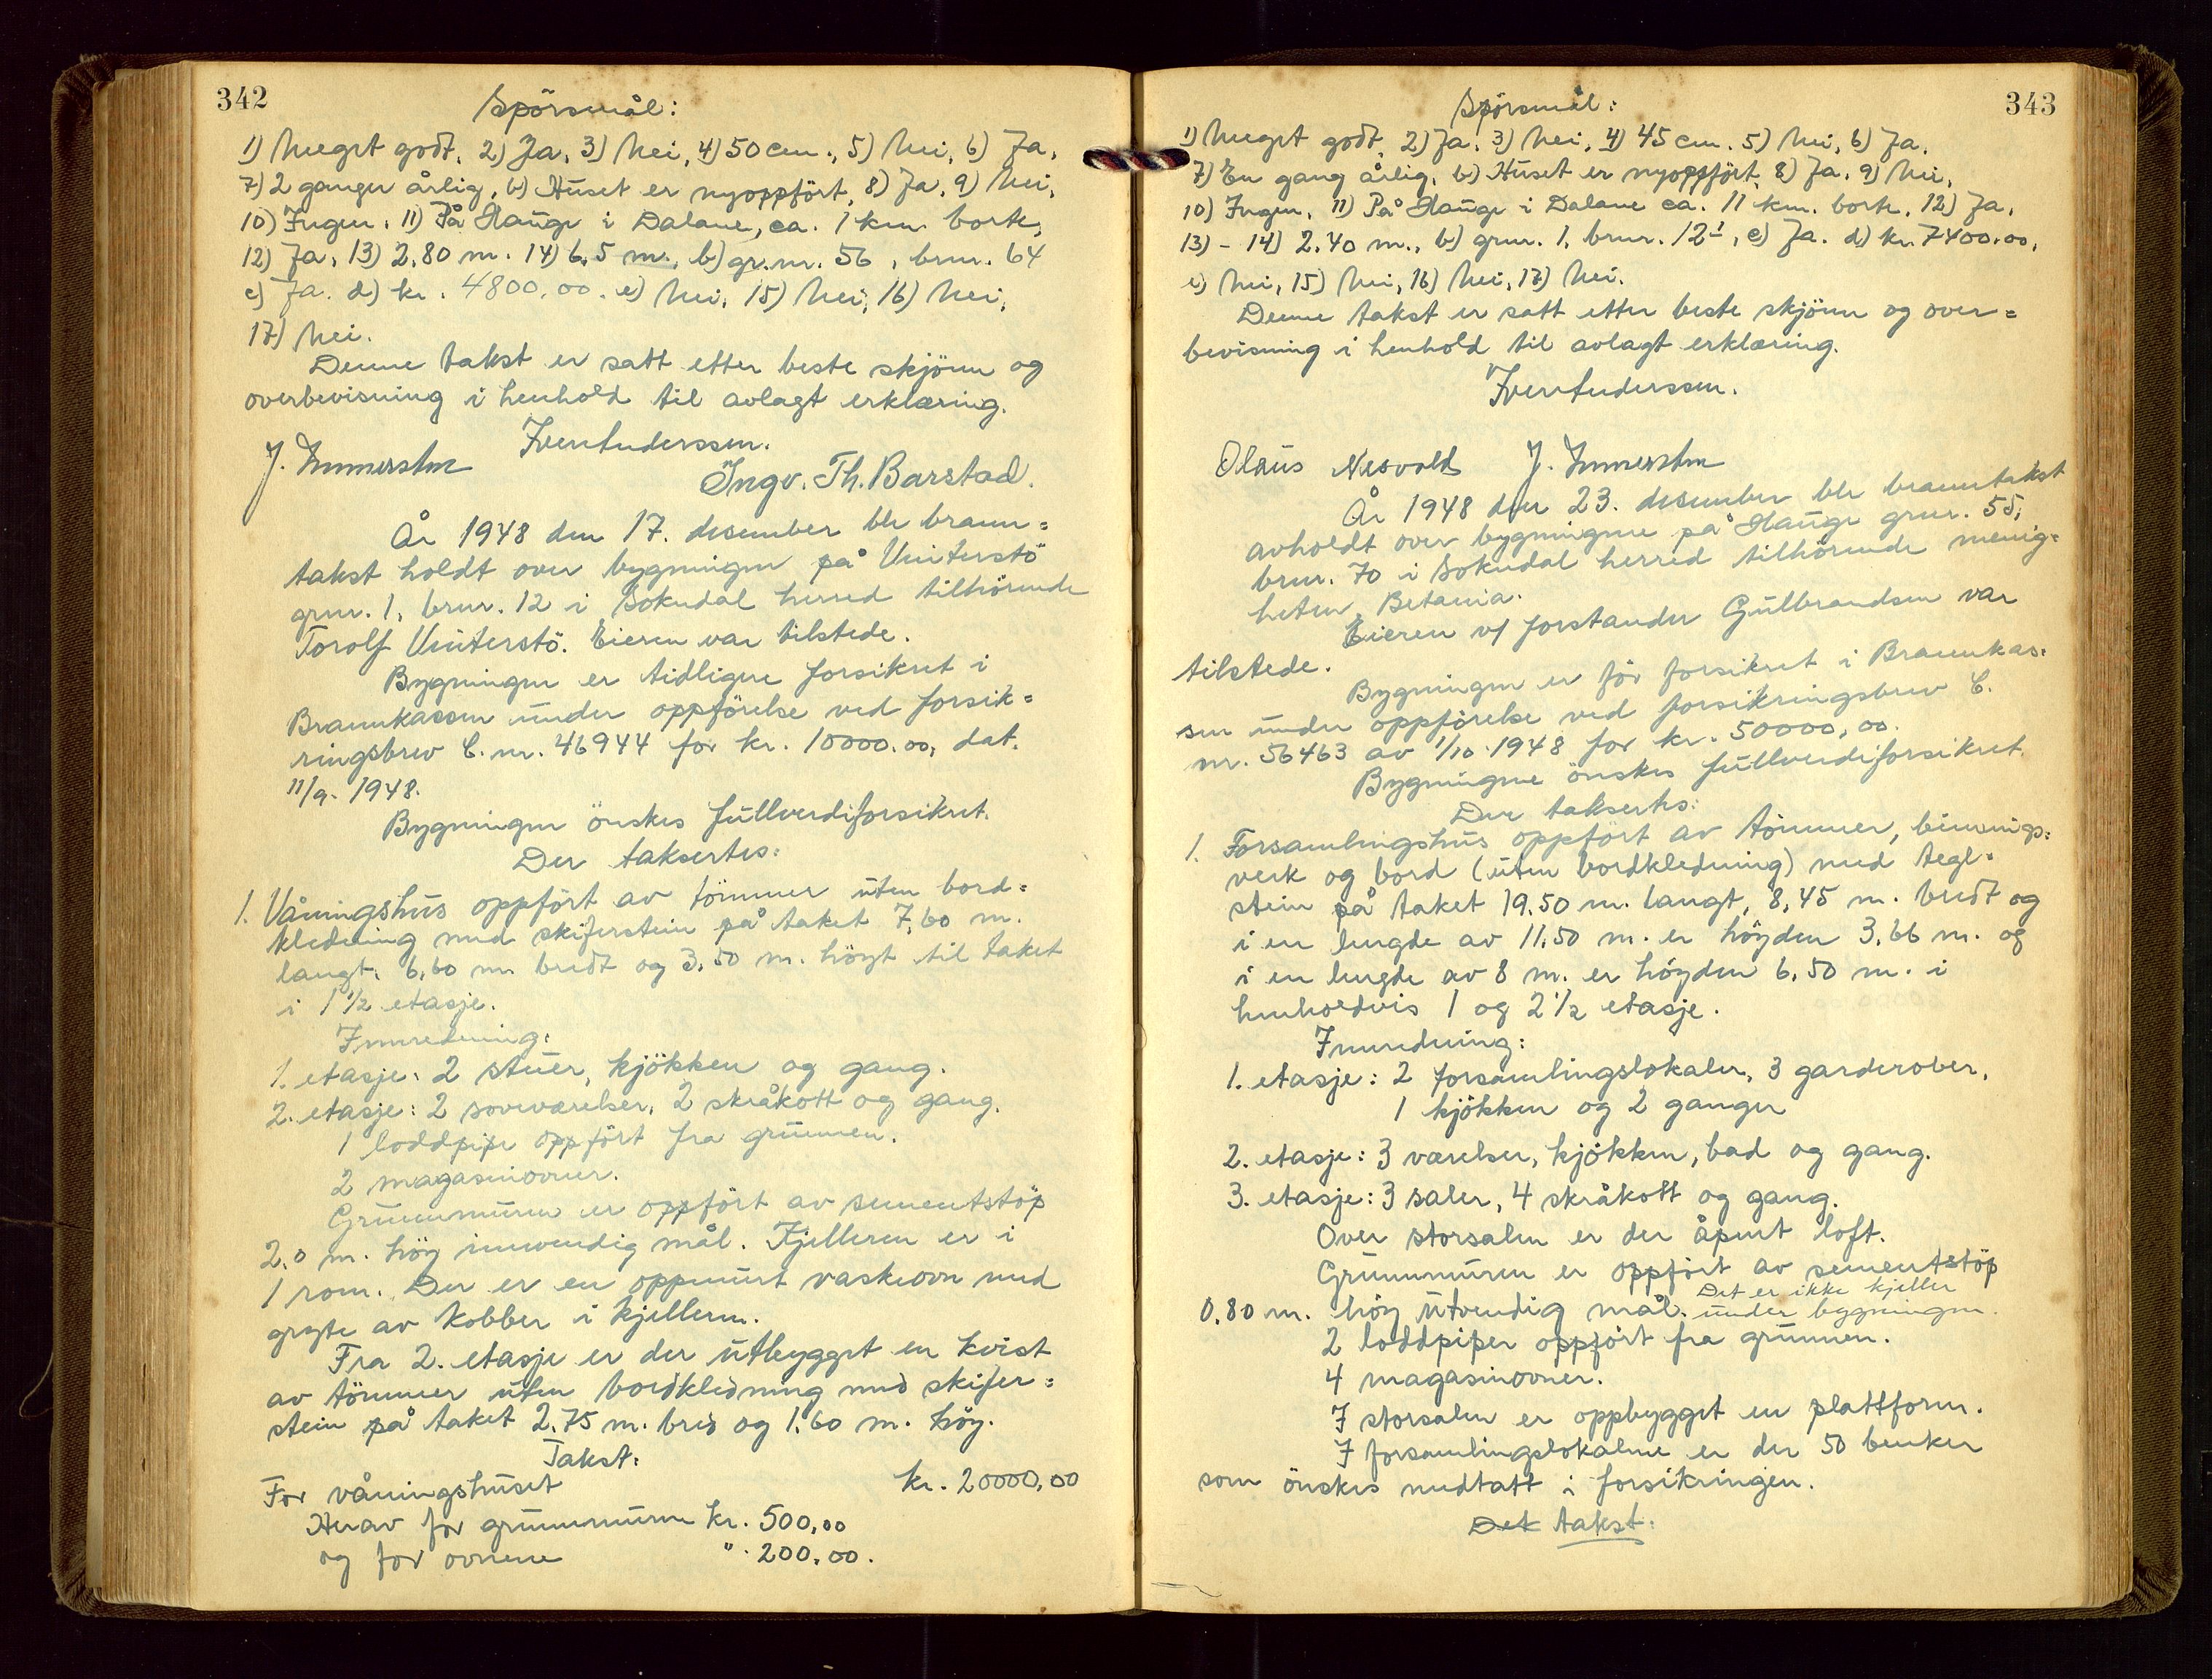 342
Spörsmål:
1) Meget godt, 2) Ja, 3) Nei, 4) 50 cm., 5) Nei, 6) Ja,
7) 2 ganger årlig, b) Huset er nyoppfört, 8) Ja, 9) Nei,
10) Ingen, 11) På Hauge i Dalane, ca. 1 km. borte,
12) Ja, 13) 2,80 m. 14) 6,5 m., b) gr.nr. 56, brnr. 64
c) Ja. d) kr. 4800,00. e) Nei, 15) Nei, 16) Nei,
17) Nei.
Denne takst er satt etter beste skjönn og
overbevisning i henhold til avlagt erklæring.
Iver Anderssen.
J. Immerstein
Ingv. Th. Barstad.
År 1948 den 17. desember ble brann=
takst holdt over bygningen på Vinterstö
grnr. 1, brnr. 12 i Sokndal herred tilhörende
Torolf Vinterstö. Eieren var tilstede.
Bygningen er tidligere forsikret i
Brannkassen under oppförelse ved forsik=
ringsbrev C. nr. 46944 for kr. 10000.00, dat.
11/9. 1948.
Bygningen önskes fullverdiforsikret.
Der taksertes:
1. Våningshus oppfört av tömmer uten bord=
kledning med skiferstein på taket 7,60 m.
langt, 6,60 m. bredt og 3,50 m. höyt til taket
i 1 1/2 etasje.
Innredning:
1. etasje: 2 stuer, kjökken og gang.
2. etasje: 2 soveværelser, 2 skråkott og gang.
1 loddpipe oppfört fra grunnen.
2 magasinovner.
Grunnmuren er oppfört av sementstöp
2,0 m. höy innvendig mål. Kjelleren er i
1 rom. Der er en oppmurt vaskeovn med
gryte av kobber i kjelleren.
Fra 2. etasje er der utbygget en kvist
av tömmer uten bordkledning med skifer=
stein på taket 2,75 m. bred og 1,60 m. höy.
Takst:
For våningshuset kr. 20000,00
Herav for grunnmuren kr. 500,00
og for ovnene " 200,00.
343
Spörsmål:
1) Meget godt, 2) Ja, 3) Nei, 4) 45 cm. 5) Nei, 6) Ja.
7) En gang årlig, b) Huset er nyoppfört, 8) Ja, 9) Nei,
10) Ingen, 11) På Hauge i Dalane ca. 11 km. borte, 12) Ja,
13) - 14) 2.40 m., b) grnr. 1, brnr. 12¹, c) Ja. d) kr. 7400.00,
e) Nei, 15) Nei, 16) Nei, 17) Nei.
Denne takst er satt etter beste skjönn og over=
bevisning i henhold til avlagt erklæring.
Iver Anderssen.
Olaus Nesvold J. Immerstein
År 1948 den 23. desember ble branntakst
avholdt over bygningene på Hauge grnr. 55,
brnr. 70 i Sokndal herred tilhörende menig=
heten, Betania.
Eieren v/ forstander Gulbrandsen var
tilstede.
Bygningen er för forsikret i Brannkas=
sen under oppförelse ved forsikringsbrev C.
nr. 56463 av 1/10 1948 for kr. 50000,00.
Bygningene önskes fullverdiforsikret.
Der taksertes:
1. Forsamlingshus oppfört av tömmer, binnings=
verk og bord (uten bordkledning) med tegl=
stein på taket 19.50 m. langt, 8,45 m. bredt og
i en lengde av 11.50 m. er höyden 3,66 m. og
i en lengde av 8 m. er höyden 6,50 m. i
henholdvis 1 og 2 1/2 etasje.
Innredning:
1. etasje: 2 forsamlingslokaler, 3 garderober,
1 kjökken og 2 ganger
2. etasje: 3 værelser, kjökken, bad og gang.
3. etasje: 3 saler, 4 skråkott og gang.
Over storsalen er der åpent loft.
Grunnmuren er oppfört av sementstöp
0,80 m. höy utvendig mål. Det er ikke kjeller
under bygningen.
2 loddpiper oppfört fra grunnen.
4 magasinovner.
I storsalen er oppbygget en plattform.
I forsamlingslokalene er der 50 benker
som önskes medtatt i forsikringen.
Det takst: